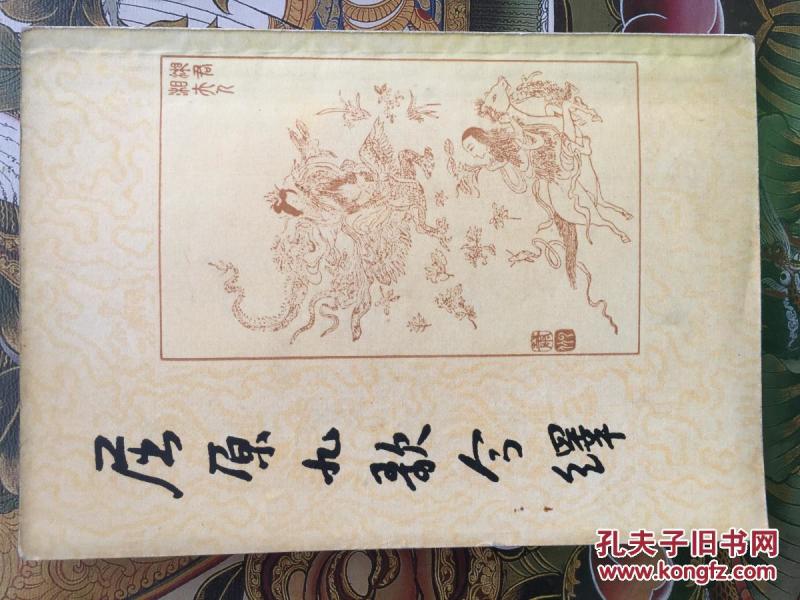 湘君
湘夫人
屈原九歌今繹
孔夫子旧书网
www.kongfz.com